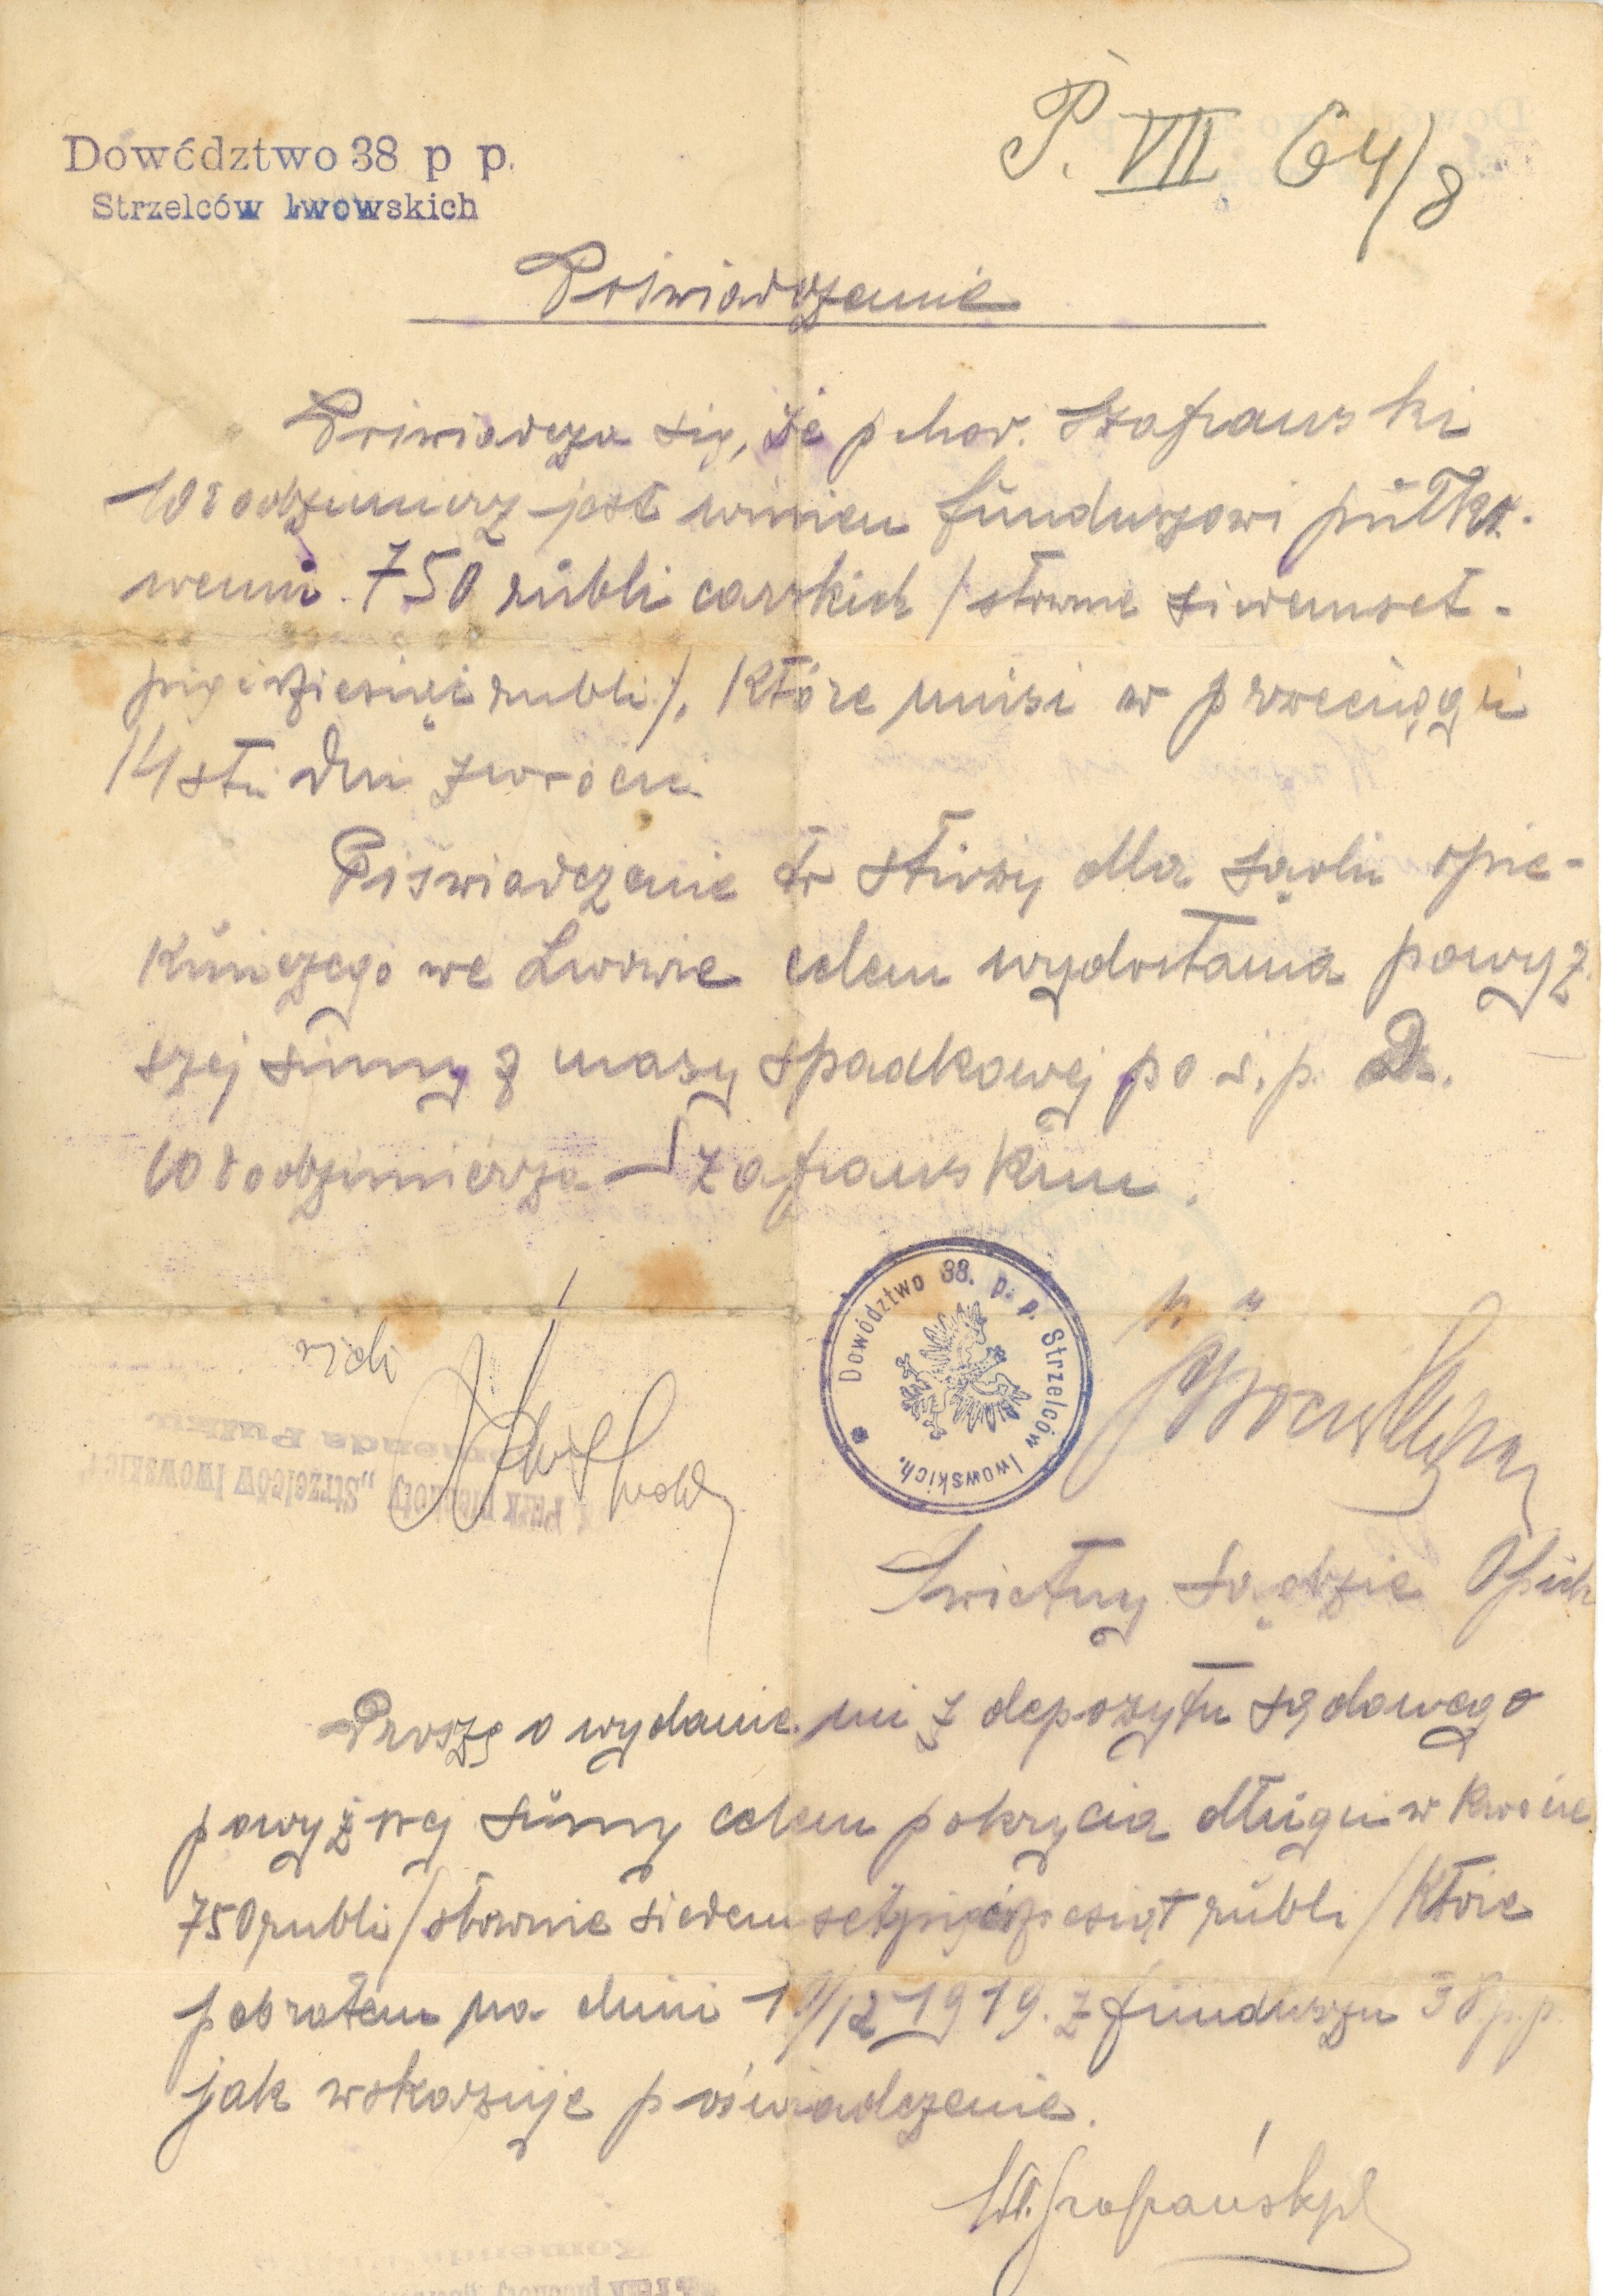 Dowództwo 38 p p.
Strzelców lwowskich
P. VII 64/8
Poświadczenie
Poświadcza się, że pchor. Szafranski
Włodzimierz jest winien funduszowi pułko-
wemu 750 rubli carskich / słownie siedemset-
pięćdziesiąt rubli /, które musi w przeciągu
14stu dni zwrócić.
Poświadczenie to służy dla sądu opie-
kuńczego we Lwowie celem wydostania powyż-
szej sumy z masy spadkowej po ś. p. Dr.
Włodzimierzu Szafrańskim.
Dowództwo 38. p. p. Strzelców lwowskich.
vidi
Swietny Sądzie Opiek
Proszę o wydanie mi z depozytu sądowego
powyższej sumy celem pokrycia długu w kwocie
750 rubli / słownie siedemsetpięćdziesiąt rubli / które
pobrałem na dniu /12 1919. z funduszu 38 p.p.
jak wskazuje poświadczenie.
Wł. Szafrański